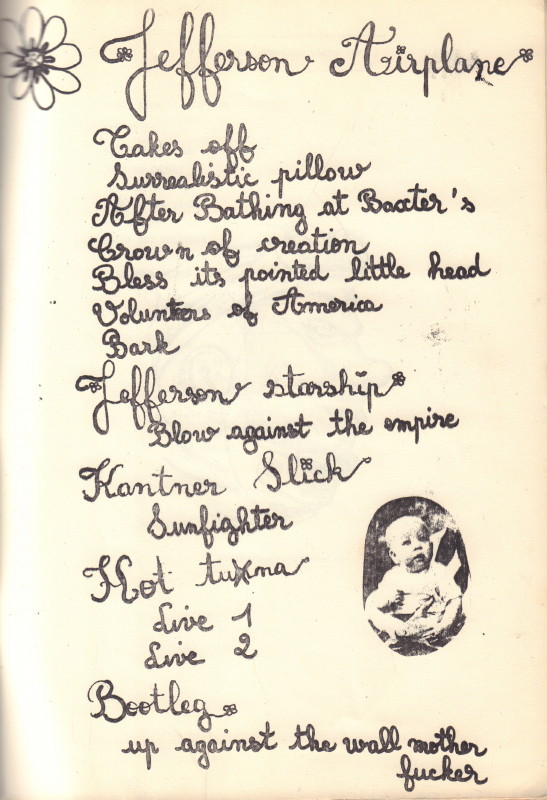 Jefferson Airplane
Takes off
Surrealistic pillow
After Bathing at Baxter's
Crown of creation
Bless its pointed little head
Volunteers of America
Bark
Jefferson starship
Blow against the empire
Kantner Slick
Sunfighter
Hot tuna
Live 1
Live 2
Bootleg
up against the wall mother
fucker